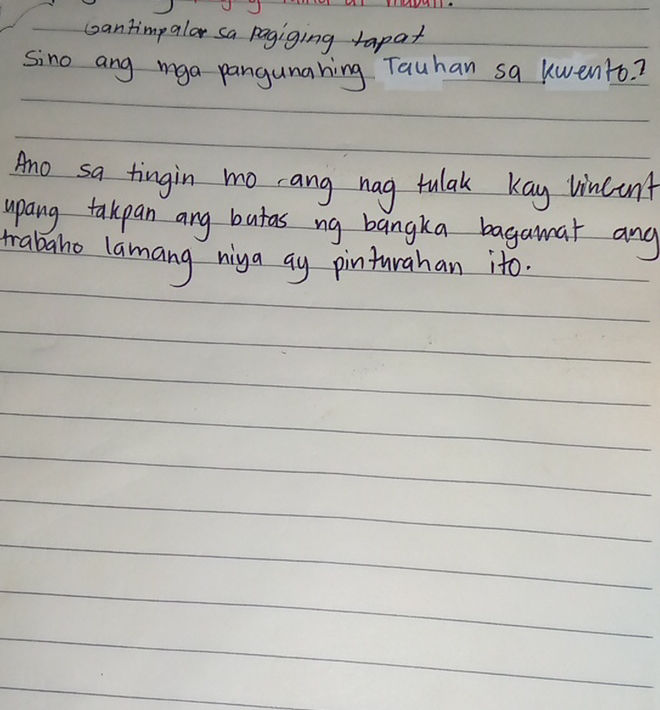 Gantimpalar sa pagiging tapat
Sino ang mga pangunahing Tauhan sa kwento?
Ano sa tingin mo ang nag tulak kay Vincent
upang takpan ang butas ng bangka bagamat ang
trabaho lamang niya ay pinturahan ito.